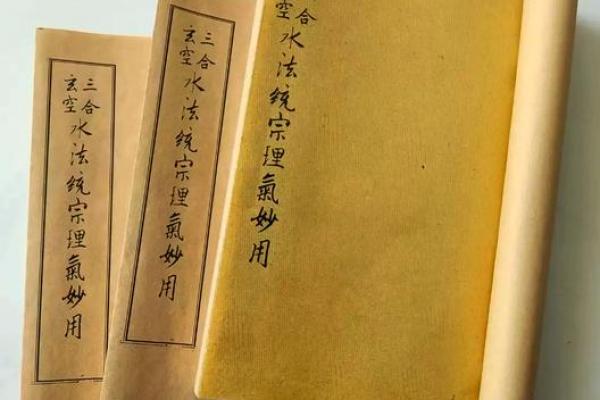 三合
玄空
水法统宗理氣妙用
三合
玄空
水法统宗理氣妙用
合
空
水法统宗理氣妙用